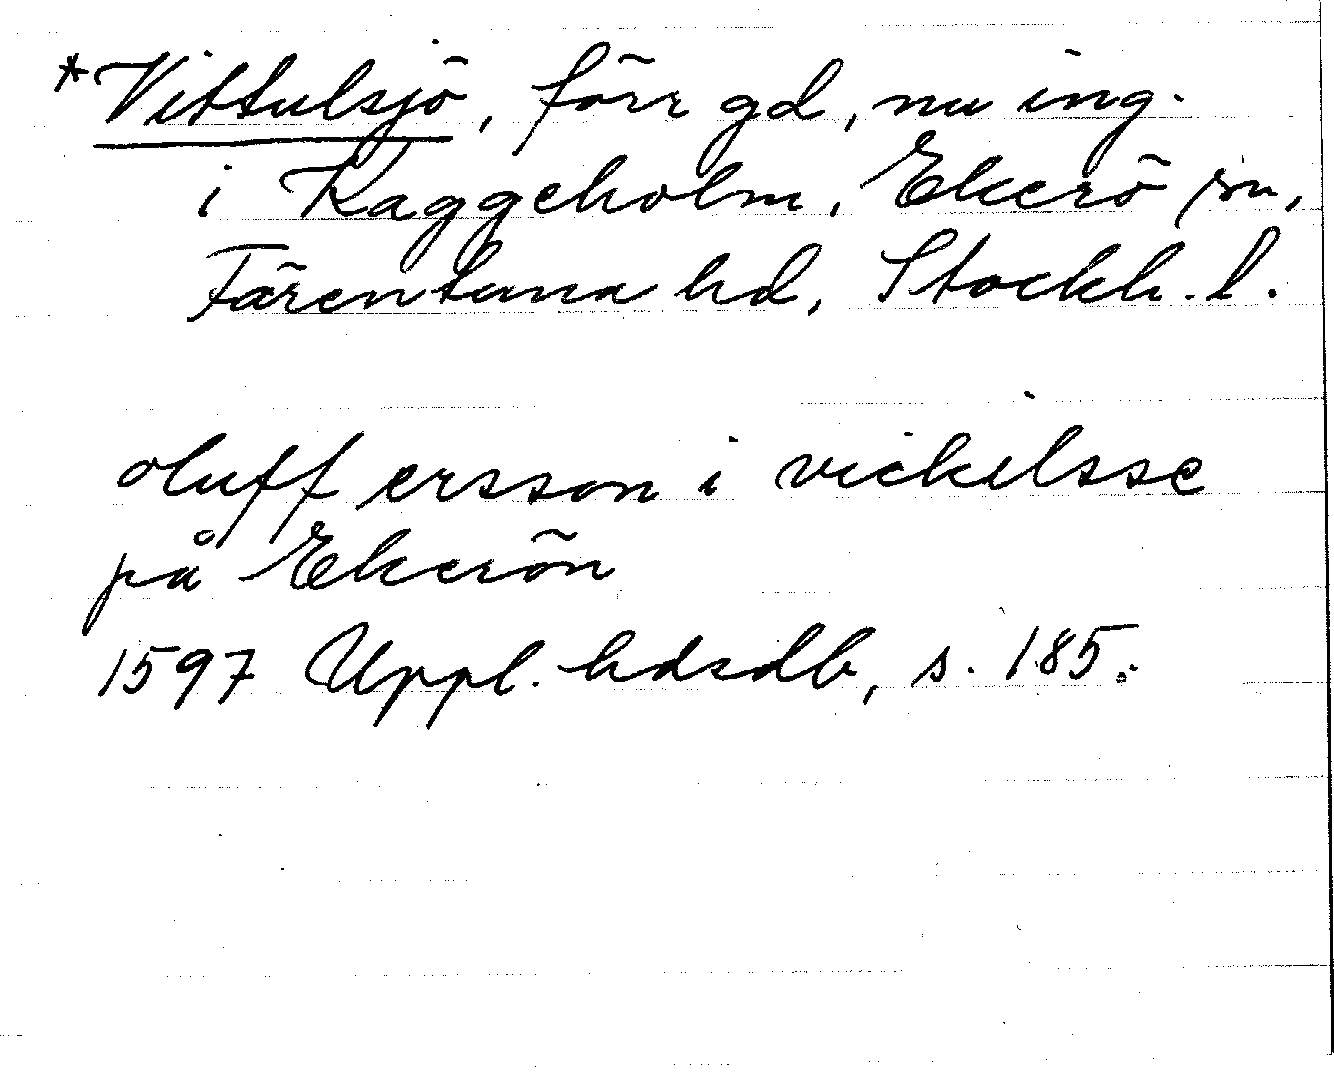 *Vittulsjö, förr gd, nu ing.
i Kaggeholm, Ekerö sn,
Färentuna hd, Stockh. l.
oluff ersson i vickelsse
på Ekerön
1597 Uppl. hdsdb, s. 185.